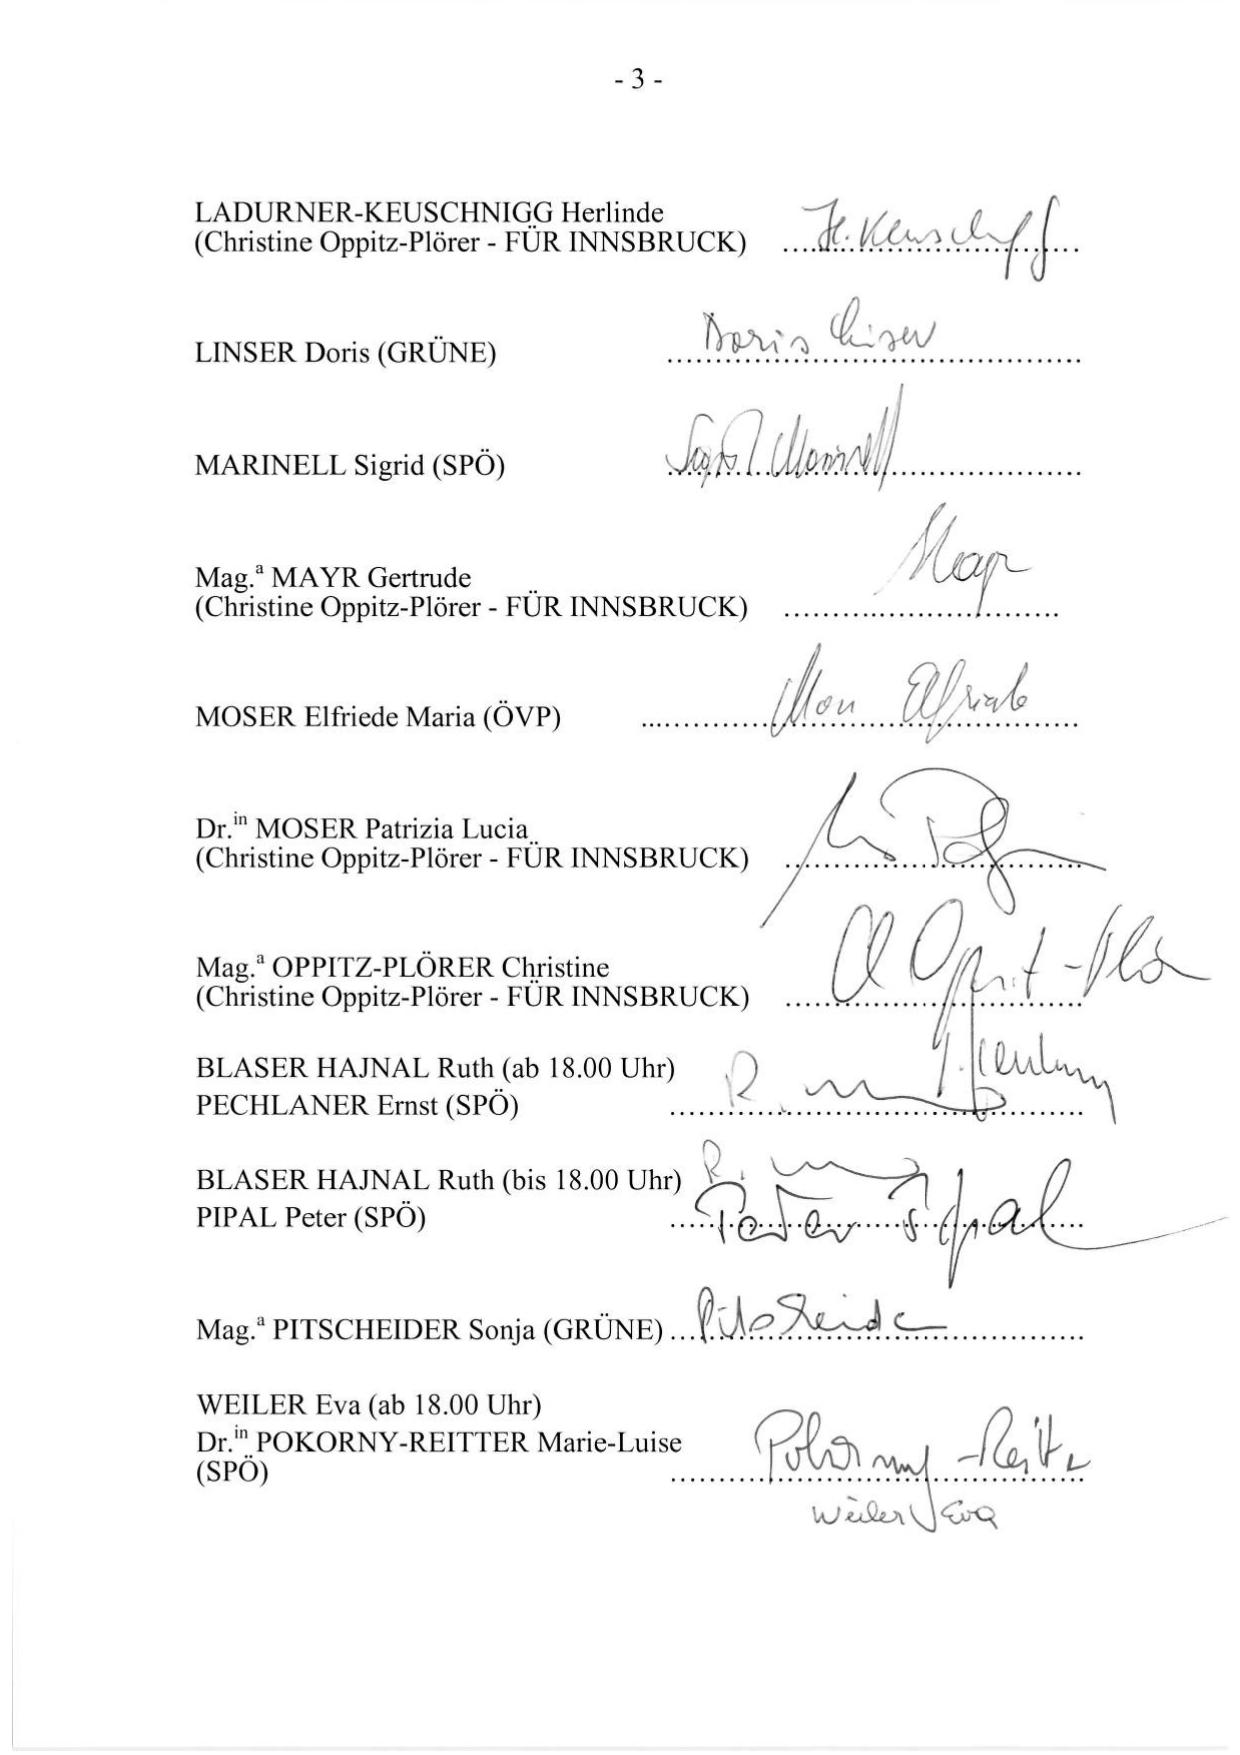 - 3 -
LADURNER-KEUSCHNIGG Herlinde
(Christine Oppitz-Plörer - FÜR INNSBRUCK) H. Keuschnigg
LINSER Doris (GRÜNE) Doris Linser
MARINELL Sigrid (SPÖ) Sigrid Marinell
Mag.ª MAYR Gertrude Mayr
(Christine Oppitz-Plörer - FÜR INNSBRUCK)
MOSER Elfriede Maria (ÖVP) Elfriede
Dr.in MOSER Patrizia Lucia
(Christine Oppitz-Plörer - FÜR INNSBRUCK)
Mag.ª OPPITZ-PLÖRER Christine
(Christine Oppitz-Plörer - FÜR INNSBRUCK)
BLASER HAJNAL Ruth (ab 18.00 Uhr)
PECHLANER Ernst (SPÖ)
BLASER HAJNAL Ruth (bis 18.00 Uhr)
PIPAL Peter (SPÖ) Peter Pipal
Mag.ª PITSCHEIDER Sonja (GRÜNE) Pitscheider
WEILER Eva (ab 18.00 Uhr)
Dr.in POKORNY-REITTER Marie-Luise Pokorny-Reitter
(SPÖ)
Weiler Eva